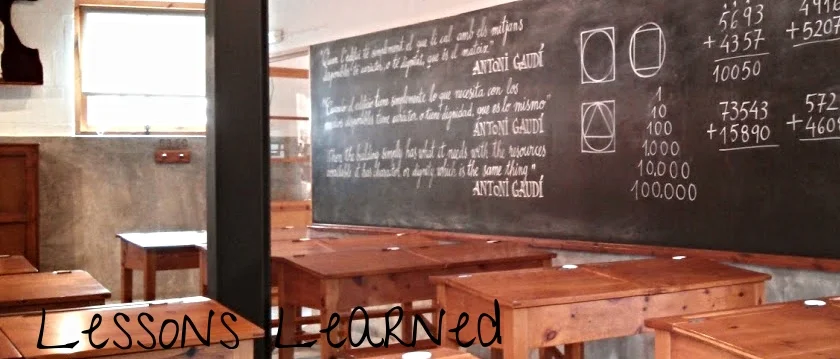 "Quan l'edifici té simplement el que li cal amb els mitjans
disponibles té caràcter, o té dignitat, que és el mateix"
ANTONI GAUDÍ
"Cuando el edificio tiene simplemente lo que necesita con los
medios disponibles tiene carácter, o tiene dignidad, que es lo mismo"
ANTONI GAUDÍ
"When the building simply has what it needs with the resources
available it has character, or dignity, which is the same thing"
ANTONI GAUDÍ
1
10
100
1,000
10,000
100,000
5693
+4357
10050
73543
+15890
+5207
572
+460
Lessons Learned